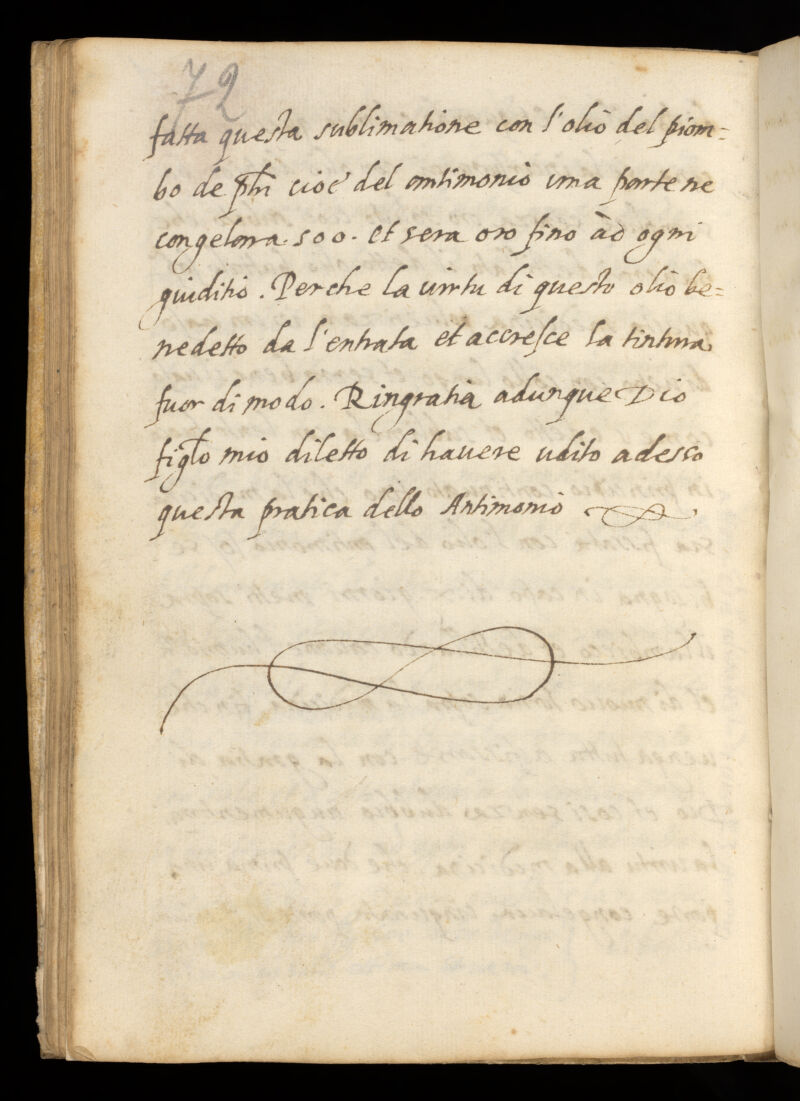 72
fatta questa sublimatione con l'olio del piom=
bo de phi cioe' del antimonio una parte ne
congelara. 500. et sera oro fino àd ogni
guiditio. Perche la virtu di questo olio be=
nedetto da l'entrata et accresce la tintura
fuor di modo. Ringratia adunque Dio
figlo mio diletto di havere udito adesso
questa pratica dello Antimonio